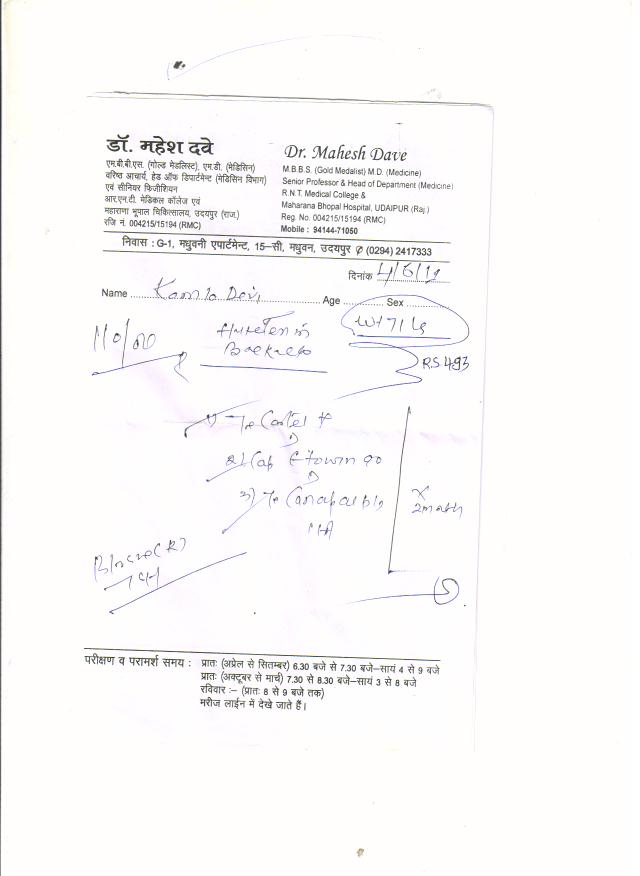 डॉ. महेश दवे
एम.बी.बी.एस. (गोल्ड मेडलिस्ट), एम.डी. (मेडिसिन)
वरिष्ठ आचार्य, हेड ऑफ डिपार्टमेन्ट (मेडिसिन विभाग)
एवं सीनियर फिजीशियन
आर.एन.टी. मेडिकल कॉलेज एवं
महाराणा भूपाल चिकित्सालय, उदयपुर (राज.)
रजि नं. 004215/15194 (RMC)
Dr. Mahesh Dave
M.B.B.S. (Gold Medalist) M.D. (Medicine)
Senior Professor & Head of Department (Medicine)
R.N.T. Medical College &
Maharana Bhopal Hospital, UDAIPUR (Raj.)
Reg. No. 004215/15194 (RMC)
Mobile : 94144-71050
निवास : G-1, मधुवनी एपार्टमेन्ट, 15-सी, मधुवन, उदयपुर ✆ (0294) 2417333
दिनांक 4/6/19
Name Kamla Devi Age Sex
Wt 71 kg
R.S. 493
1)
2) Cap
3)
x
2 month
परीक्षण व परामर्श समय : प्रातः (अप्रेल से सितम्बर) 6.30 बजे से 7.30 बजे-सायं 4 से 9 बजे
प्रातः (अक्टूबर से मार्च) 7.30 से 8.30 बजे-सायं 3 से 8 बजे
रविवार :- (प्रातः 8 से 9 बजे तक)
मरीज लाईन में देखे जाते हैं।